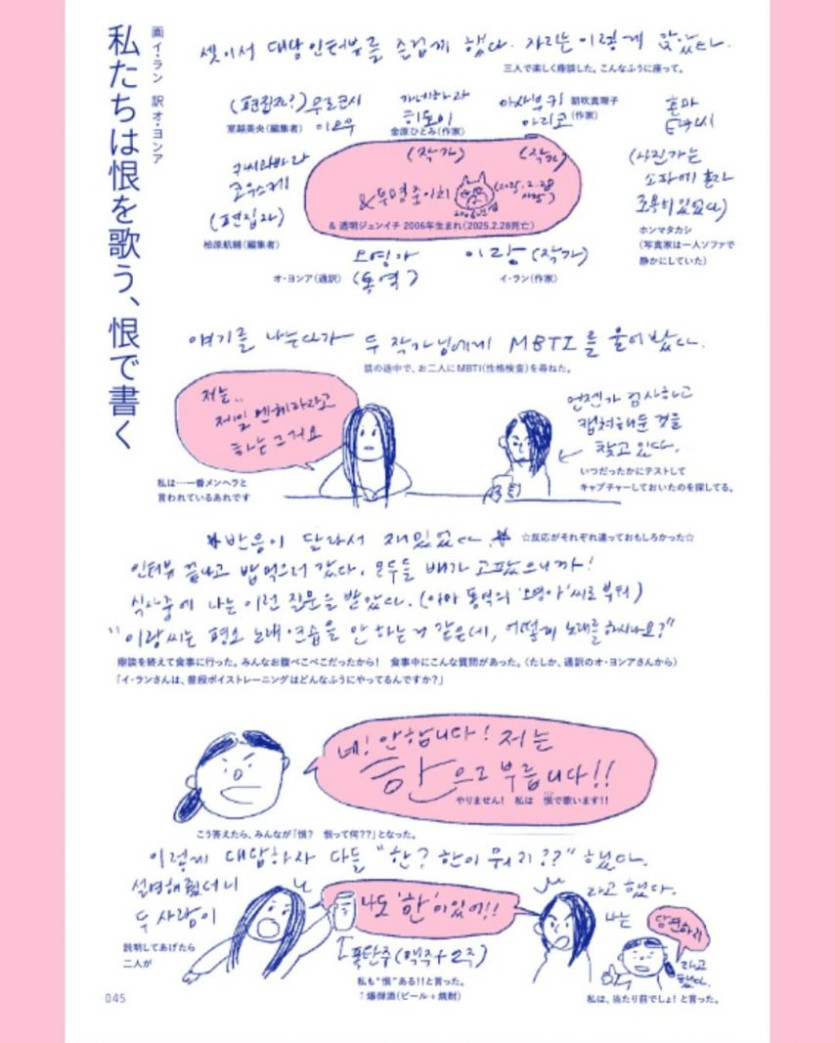 私たちは恨を歌う、恨で書く
画 イ・ラン 訳 オ・ヨンア
셋이서 대담인터뷰를 즐겁게 했다. 자리는 이렇게 앉았다.
三人で楽しく座談した。こんなふうに座って。
(편집자?) 무로코시 미오우
室越美央(編集者)
가네하라 히토미
金原ひとみ(作家)
(작가)
아사부키 마리코
朝吹真理子(作家)
(작가)
혼마 타카시
(사진가는
소파에 혼자
조용히 있었다)
ホンマタカシ
(写真家は一人ソファで
静かにしていた)
카시와바라
코우스케
(편집자)
柏原航輔(編集者)
&투명준이치
(2025.2.28
& 透明ジュンイチ 2006年生まれ(2025.2.28死亡)
오영아
(통역)
オ・ヨンア(通訳)
이랑 (작가)
イ・ラン(作家)
얘기를 나누다가 두 작가님에게 MBTI를 물어봤다.
話の途中で、お二人にMBTI(性格検査)を尋ねた。
저는..
제일 멘헤라라고
하는 그거요
私は……一番メンヘラと
言われているあれです
언젠가 검사하고
캡처해둔 것을
찾고 있다.
いつだったかにテストして
キャプチャーしておいたのを探してる。
*반응이 달라서 재밌었다*
☆反応がそれぞれ違っておもしろかった☆
인터뷰 끝나고 밥먹으러 갔다. 모두들 배가 고팠으니까!
식사중에 나는 이런 질문을 받았다. (아마 통역의 '오영아'씨로부터)
"이랑씨는 평소 노래연습을 안 하는거 같은데, 어떻게 노래를 하시나요?"
座談を終えて食事に行った。みんなお腹ぺこぺこだったから! 食事中にこんな質問があった。(たしか、通訳のオ・ヨンアさんから)
「イ・ランさんは、普段ボイストレーニングはどんなふうにやってるんですか?」
네! 안합니다! 저는
한으로 부릅니다!!
やりません! 私は 恨で歌います!!
こう答えたら、みんなが「恨? 恨って何??」となった。
이렇게 대답하자 다들 "한? 한이 뭐지??" 했다.
설명해줬더니
두 사람이
説明してあげたら
二人が
나도 '한'이 있어!!
폭탄주(맥주+소주)
私も“恨”ある!!と言った。
↑爆弾酒(ビール+焼酎)
라고 했다.
나는
당연하지
라고
했다.
私は、当たり前でしょ! と言った。
045